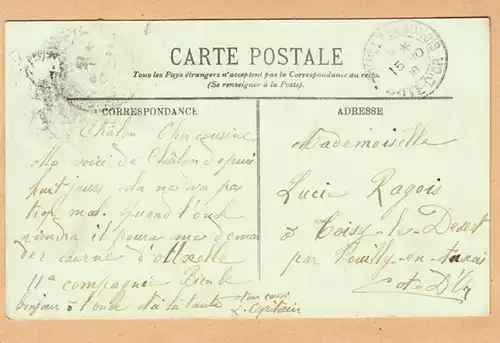 CARTE POSTALE
Tous les Pays étrangers n'acceptent pas la Correspondance au recto.
(Se renseigner à la Poste).
CORRESPONDANCE
Châlon Cher cousine
Me voici de Châlon depuis
huit jours cela ne va pas
mal. quand l'oncle
viendra il poura me deman
der caserne
11e compagnie Bien le
bonjour à l'oncle et à la tante
ton cousin
L. Capitain
ADRESSE
Mademoiselle
Lucie Ragois
à Thoisy-le-Désert
par Pouilly-en-Auxois
Cote d'Or